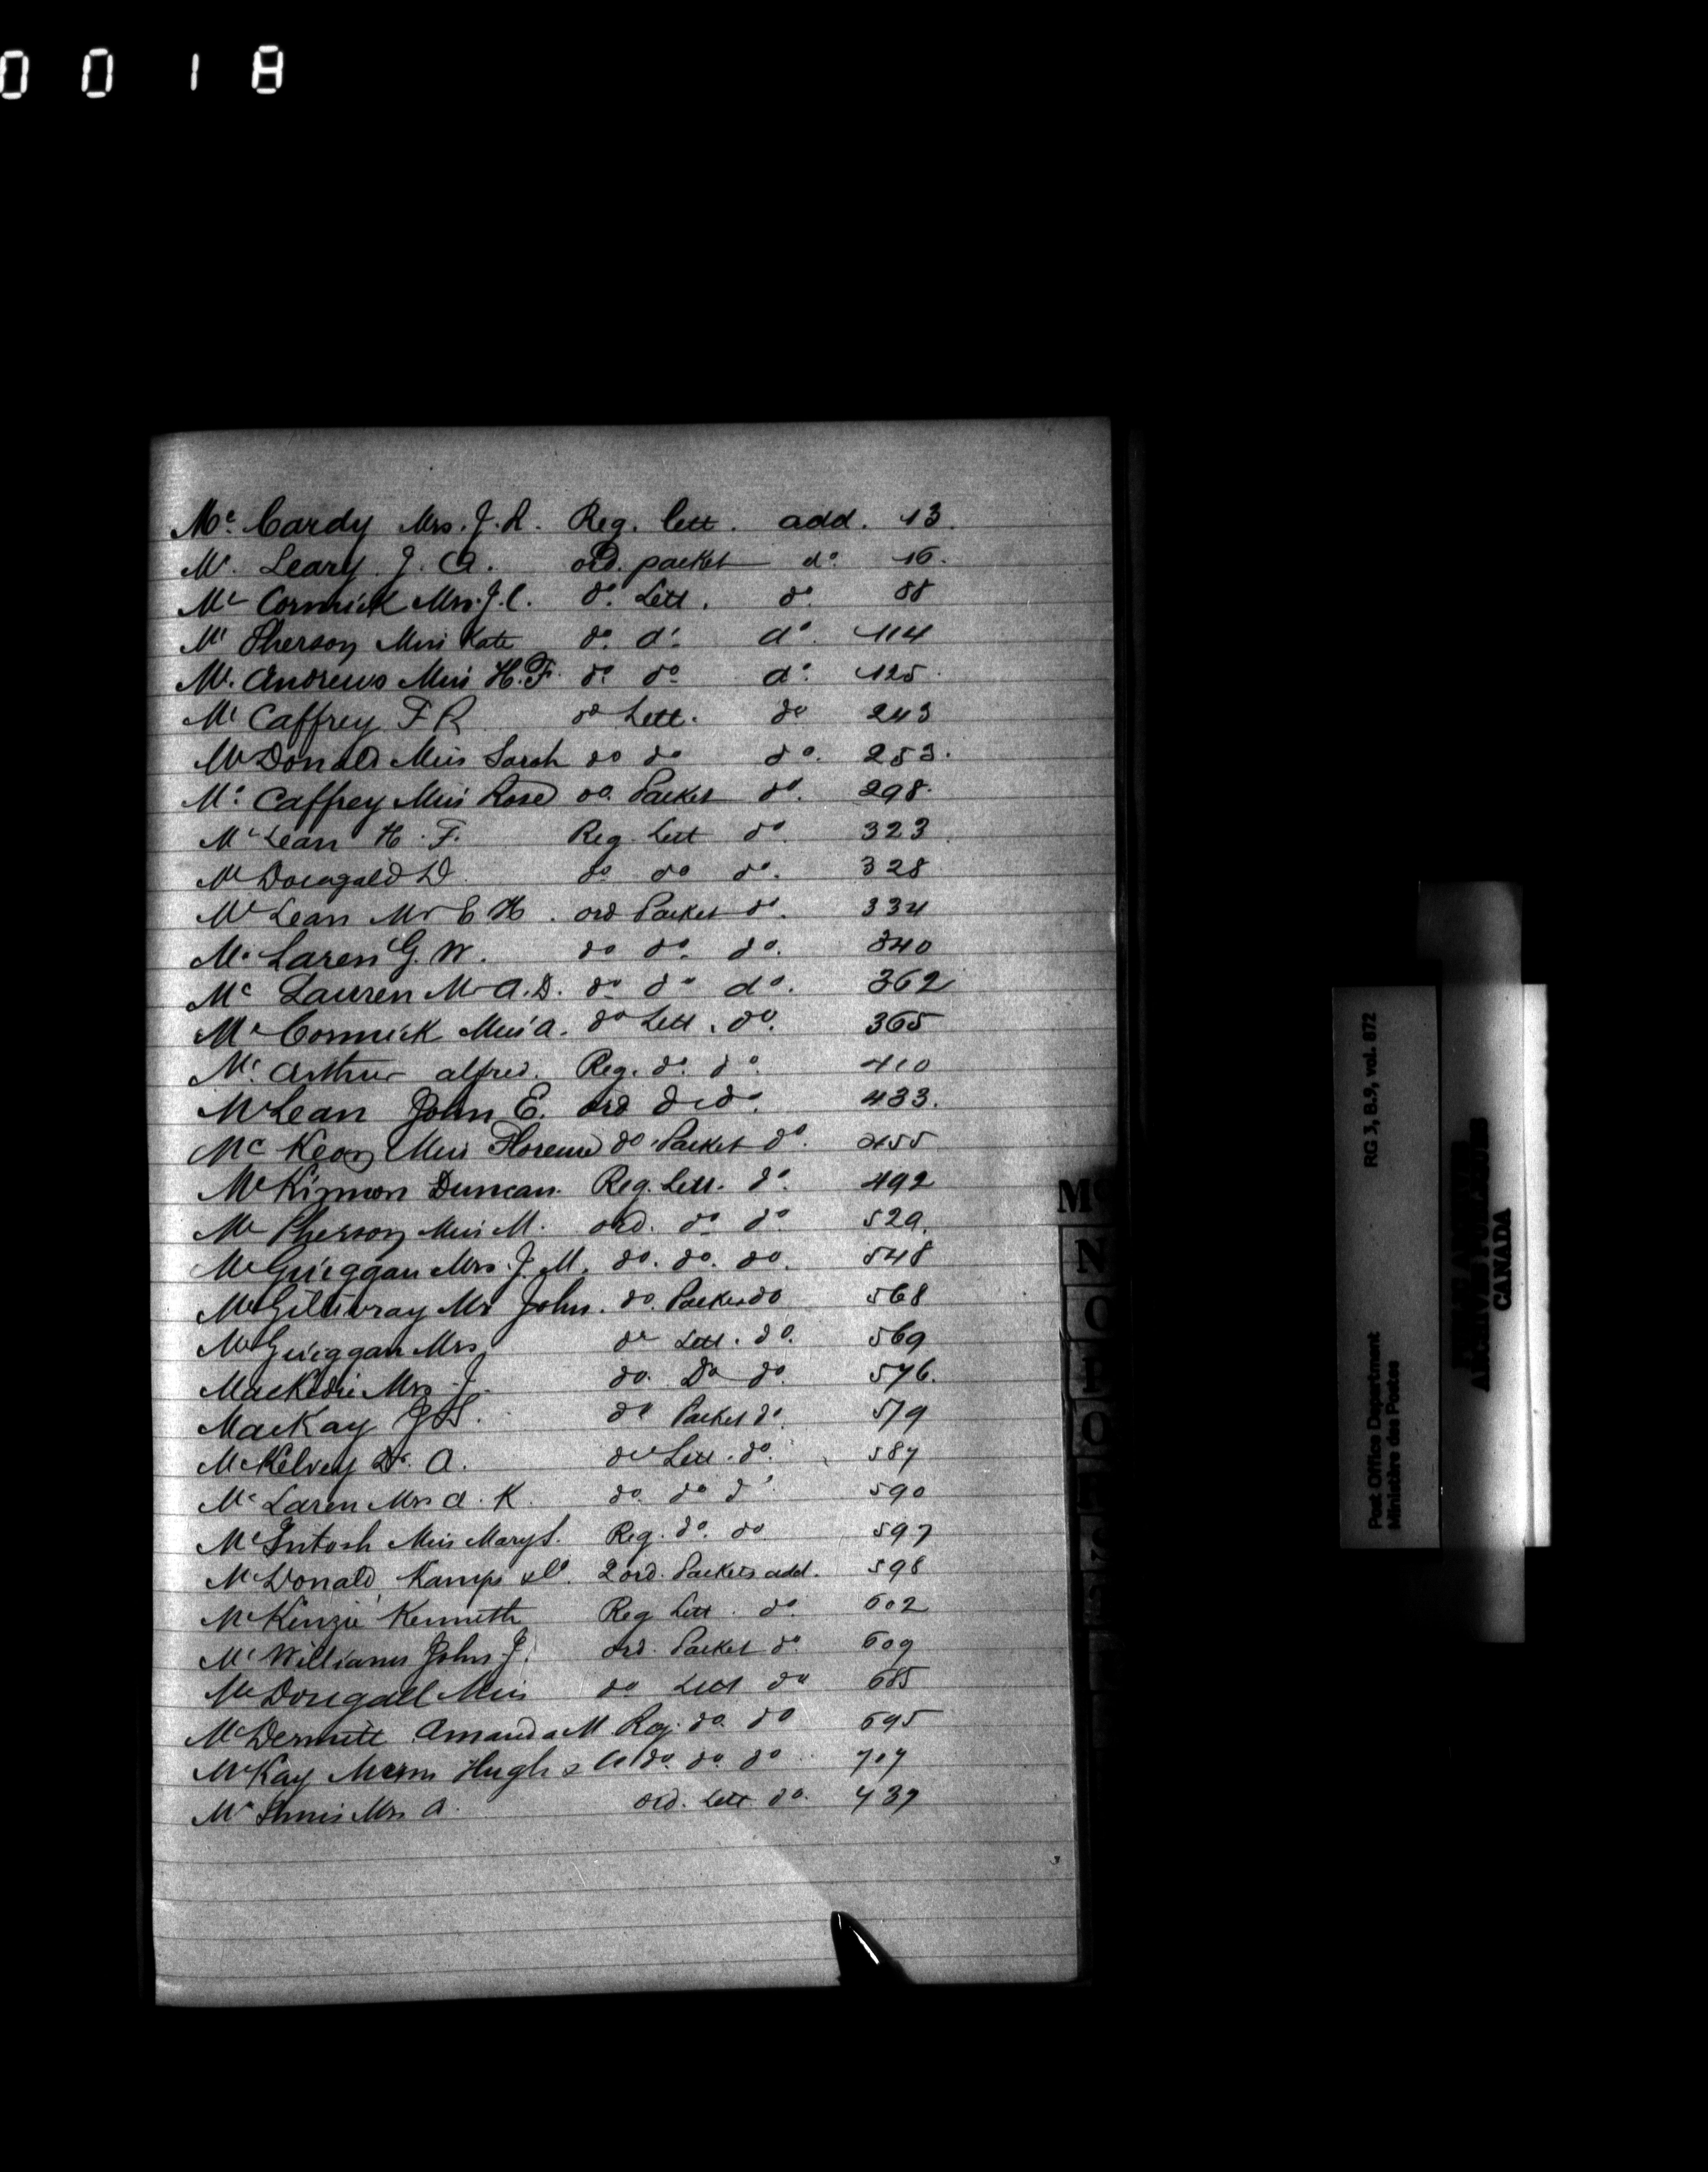 0 0 1 8
Mc Cardy Mrs. J. R. Reg. lett. add. 13.
Mc. Leary J. A. ord. packet do. 16.
Mc Cormick Mrs. J. C. do. Lett. do. 88
Mc Pherson Miss Kate do. do. do. 114
Mc. Andrews Miss H. F. do. do do. 125.
Mc Caffrey F R do Lett. do 243
Mc Donald Miss Sarah do do do. 253.
Mc Caffrey Miss Rose do. Packet do. 298.
Mc Lean H. F. Reg. Lett do. 323.
Mc Dougald D. do do do. 328
Mc Lean Mr E H. ord Packet do. 334
Mc Laren G. W. do do. do. 340
Mc Lauren Mr A. D. do do do. 362
Mc Cormick Miss A. do Lett. do. 365
Mc Arthur Alfred. Reg. do. do. 410
McLean John E. ord do do. 433.
Mc Keon Miss Florence do. Packet do. 455
McKinnon Duncan. Reg. Lett. do. 492
Mc Pherson Miss M. ord. do do 529.
McGuiggan Mrs. J. M. do. do. do. 548
McGillivray Mr John. do. Packet do 568
McGuiggan Mrs. do Lett. do. 569
MacKedie Mrs. J. do. Do do. 576.
MacKay J S. do Packet do. 579
McKelvey Dr. A. do Lett. do. 587
Mc Laren Mrs A. K. do. do do 590
McIntosh Miss Mary S. Reg. do. do 597
McDonald, Kamps & Co. 2 ord. Packets add. 598
McKenzie Kenneth Reg Lett. do. 602
Mc Williams John J. ord. Packet do 609
McDougall Miss do Lett do 685
McDermitt Amanda M. Reg. do. do 695
McKay Messrs Hugh & Co do. do. do 707
Mc Innis Mrs A. ord. Lett do. 737
Mc
N
O
RG 3, B.9, vol. 872
Post Office Department
Ministère des Postes
ARCHIVES PUBLIQUES
CANADA